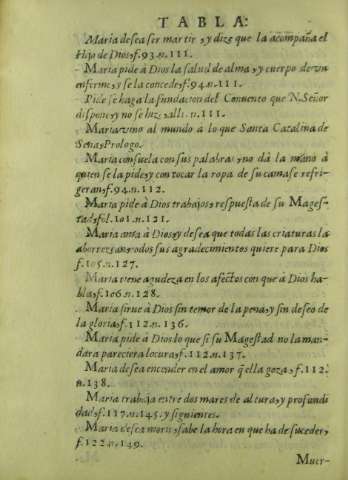 TABLA:
Maria desea ser martir, y dize que la acompaña el
Hijo de Dios, f.93.n.111.
Maria pide à Dios la salud de alma, y cuerpo de vn
enfermo, y se la concede, f.94.n.111.
Pide se haga la fundacion del Convento que N.Señor
dispone, y no se hiz, alli.n.111.
Maria vino al mundo a lo que Santa Catalina de
Sena, Prologo.
Maria consuela con sus palabras, no dà la mano à
quien se la pide, y con tocar la ropa de su cama se refri-
geran, f.94.n.112.
Maria pide à Dios trabajos, respuesta de su Mages-
tad, fol.101.n.121.
Maria ama à Dios, y desea que todas las criaturas la
aborrezcan, todos sus agradecimientos quiere para Dios
f.105.n.127.
Maria tiene agudeza en los afectos con que à Dios ha-
bla, f.106.n.128.
Maria sirue à Dios sin temor de la pena, y sin deseo de
la gloria, f.112.n.136.
Maria pide à Dios lo que si su Magestad no la man-
dára pareciera locura, f.112.n.137.
Maria desea encender en el amor q̃ ella goza, f.112.
n.138.
Maria trabaja entre dos mares de altura, y profundi
dad, f.117.n.145. y siguientes.
Maria desea morir, sabe la hora en que ha de suceder,
f.122.n.149.
Muer-